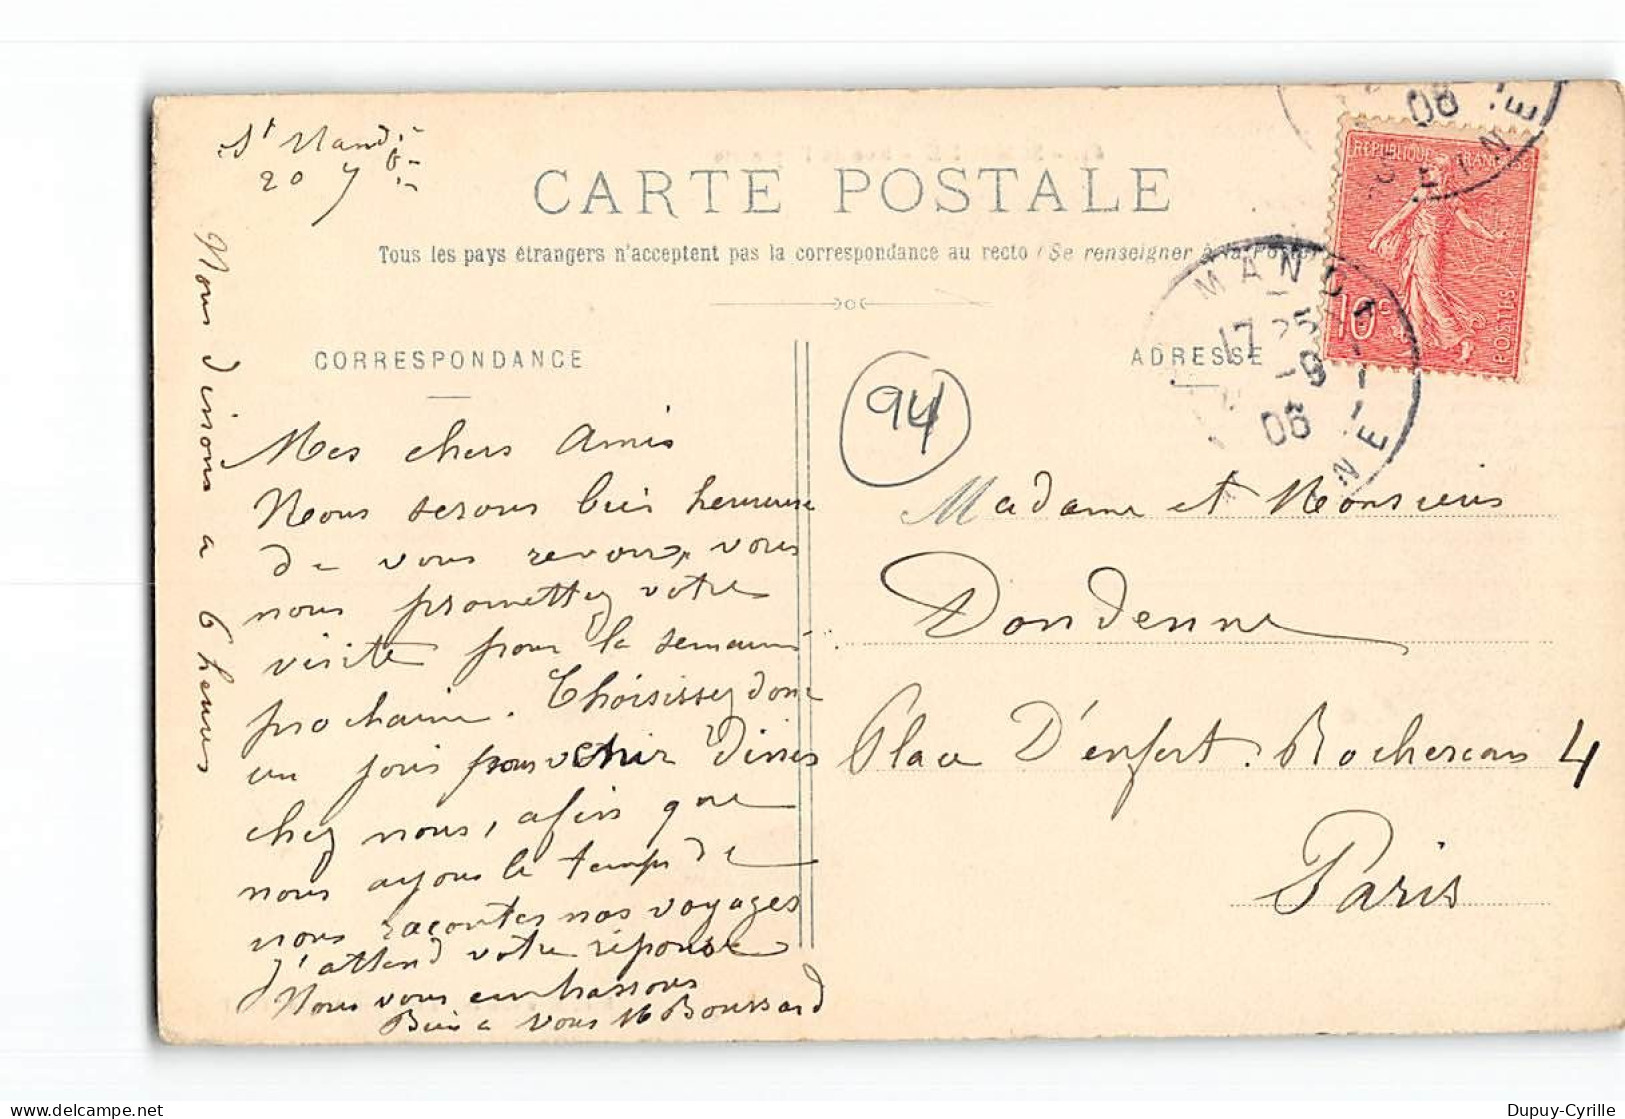 St Mandé
20 7bre
CARTE POSTALE
Tous les pays étrangers n'acceptent pas la correspondance au recto (Se renseigner à la Poste)
CORRESPONDANCE
ADRESSE
94
REPUBLIQUE FRANÇAISE
10c
POSTES
MANDÉ
17 25
-9
06
NE
06
EINE
Mes chers Amis
Nous serons bien heureuse
de vous revoir, vous
nous promettez votre
visite pour la semaine
prochaine. Choisissez donc
un jour pour venir diner
chez nous, afin que
nous ayons le temps de
nous raconter nos voyages
J'attend votre réponse
Nous vous embrassons
Bien a vous M Boussard
Nous dinons a 6 heures
Madame et Monsieur
Dondenne
Place D'enfert. Rochereau 4
Paris
Dupuy-Cyrille